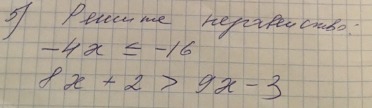 5) Решите неравенство:
-4x ≤ -16
8x + 2 > 9x - 3